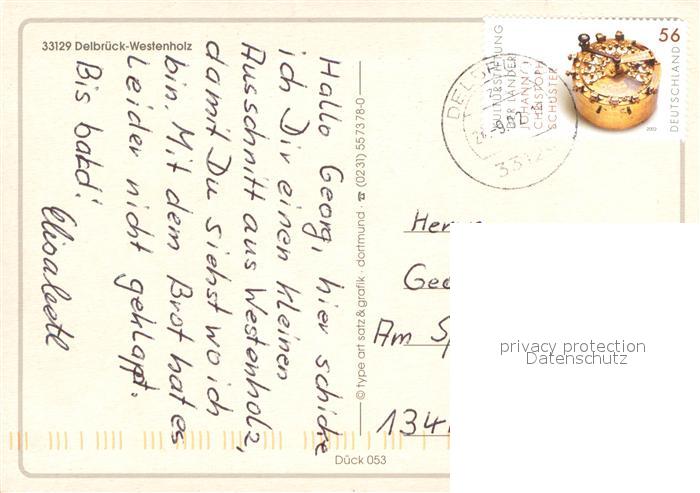 33129 Delbrück-Westenholz
Hallo Georg, hier schicke
ich Dir einen kleinen
Ausschnitt aus Westenholz,
damit Du siehst wo ich
bin. Mit dem Brot hat es
Leider nicht geklappt.
Bis bald!
Elisabeth
© type art satz & grafik · dortmund · ☎ (0231) 557378-0
Dück 053
KULTURSTIFTUNG
DER LÄNDER
JOHANN
CHRISTOPH
SCHUSTER
56
DEUTSCHLAND
2003
Am
privacy protection
Datenschutz